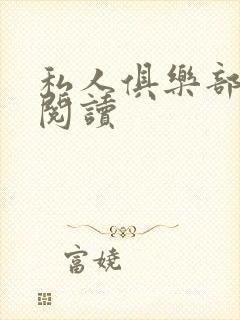 私人俱樂部
閱讀
富娆